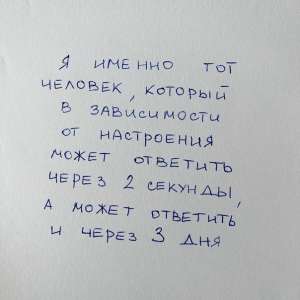 Я ИМЕННО ТОТ
ЧЕЛОВЕК, КОТОРЫЙ
В ЗАВИСИМОСТИ
ОТ НАСТРОЕНИЯ
МОЖЕТ ОТВЕТИТЬ
ЧЕРЕЗ 2 СЕКУНДЫ,
А МОЖЕТ ОТВЕТИТЬ
И ЧЕРЕЗ 3 ДНЯ